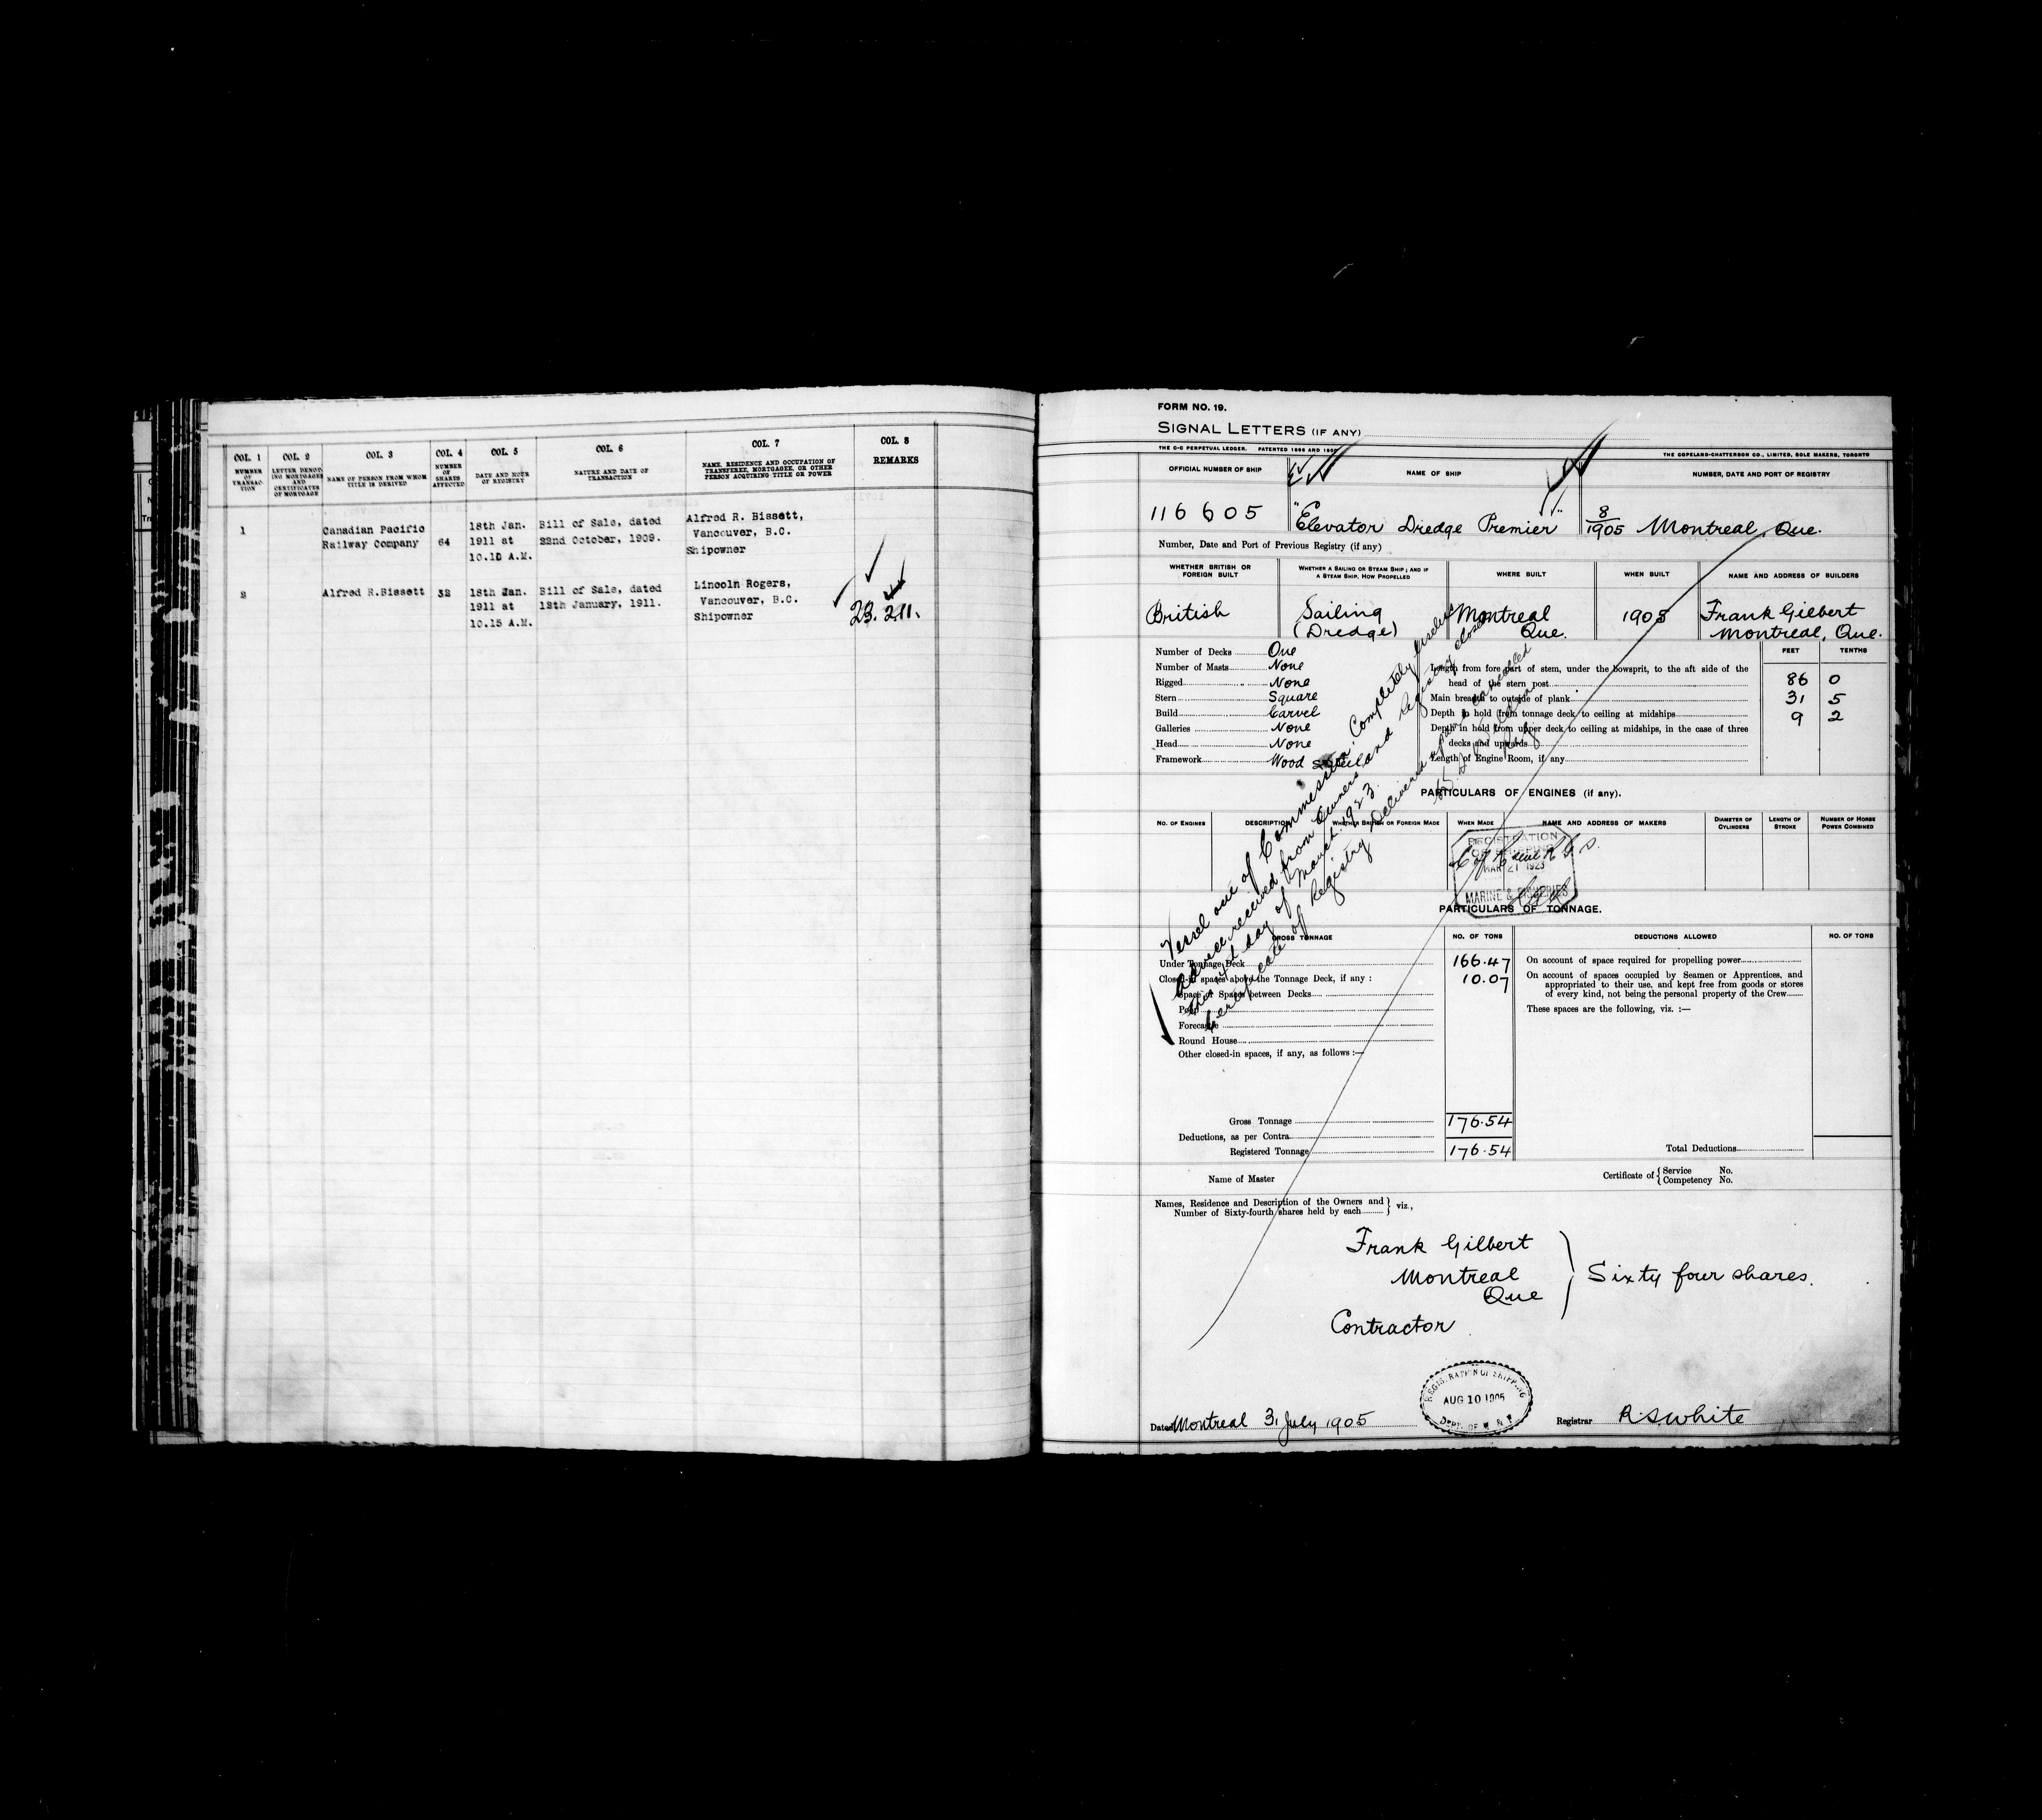 COL. 1
NUMBER OF TRANSAC-TION
COL. 2
LETTER DENOTING MORTGAGES AND CERTIFICATES OF MORTGAGE
COL. 3
NAME OF PERSON FROM WHOM TITLE IS DERIVED
COL. 4
NUMBER OF SHARES AFFECTED
COL. 5
DATE AND HOUR OF REGISTRY
COL. 6
NATURE AND DATE OF TRANSACTION
COL. 7
NAME, RESIDENCE AND OCCUPATION OF TRANSFEREE, MORTGAGEE, OR OTHER PERSON ACQUIRING TITLE OR POWER
COL. 8
REMARKS
1 Canadian Pacific Railway Company 64 18th Jan. 1911 at 10.10 A.M. Bill of Sale, dated 22nd October, 1909. Alfred R. Bissett, Vancouver, B.C. Shipowner
2 Alfred R.Bissett 32 18th Jan. 1911 at 10.15 A.M. Bill of Sale, dated 12th January, 1911. Lincoln Rogers, Vancouver, B.C. Shipowner 23.2.11.
FORM NO. 19.
SIGNAL LETTERS (IF ANY)
THE C-C PERPETUAL LEDGER. PATENTED 1898 AND 1900
THE COPELAND-CHATTERSON CO., LIMITED, SOLE MAKERS, TORONTO
OFFICIAL NUMBER OF SHIP
NAME OF SHIP
NUMBER, DATE AND PORT OF REGISTRY
116605
"Elevator Dredge Premier"
8/1905 Montreal, Que.
Number, Date and Port of Previous Registry (if any)
WHETHER BRITISH OR FOREIGN BUILT
WHETHER A SAILING OR STEAM SHIP; AND IF A STEAM SHIP, HOW PROPELLED
WHERE BUILT
WHEN BUILT
NAME AND ADDRESS OF BUILDERS
British
Sailing (Dredge)
Montreal Que.
1905
Frank Gilbert Montreal, Que.
FEET TENTHS
Number of Decks One
Number of Masts None
Rigged None
Stern Square
Build Carvel
Galleries None
Head None
Framework Wood
Length from fore part of stem, under the bowsprit, to the aft side of the head of the stern post 86 0
Main breadth to outside of plank 31 5
Depth in hold from tonnage deck to ceiling at midships 9 2
Depth in hold from upper deck to ceiling at midships, in the case of three decks and upwards
Length of Engine Room, if any
Vessel out of Commission. Completely
Advice received from Owners and Registry closed
this day of March 1923.
Certificate of Registry Delivered up and cancelled
PARTICULARS OF ENGINES (if any).
NO. OF ENGINES
DESCRIPTION
WHETHER BRITISH OR FOREIGN MADE
WHEN MADE
NAME AND ADDRESS OF MAKERS
DIAMETER OF CYLINDERS
LENGTH OF STROKE
NUMBER OF HORSE POWER COMBINED
REGISTRATION OF SHIPPING
MAR 21 1923
MARINE & FISHERIES
PARTICULARS OF TONNAGE.
GROSS TONNAGE
NO. OF TONS
DEDUCTIONS ALLOWED
NO. OF TONS
Under Tonnage Deck 166.47
Closed-in spaces above the Tonnage Deck, if any : 10.07
Space or Spaces between Decks
Poop
Forecastle
Round House
Other closed-in spaces, if any, as follows :—
On account of space required for propelling power
On account of spaces occupied by Seamen or Apprentices, and
appropriated to their use, and kept free from goods or stores
of every kind, not being the personal property of the Crew
These spaces are the following, viz. :—
Gross Tonnage 176.54
Deductions, as per Contra
Registered Tonnage 176.54
Total Deductions
Name of Master
Certificate of { Service No.
Competency No.
Names, Residence and Description of the Owners and
Number of Sixty-fourth shares held by each } viz.,
Frank Gilbert
Montreal
Que
Contractor
Sixty four shares.
REGISTRATION OF SHIPPING
AUG 10 1905
DEPT. OF M & F
Dated Montreal 31 July 1905
Registrar R.S. White